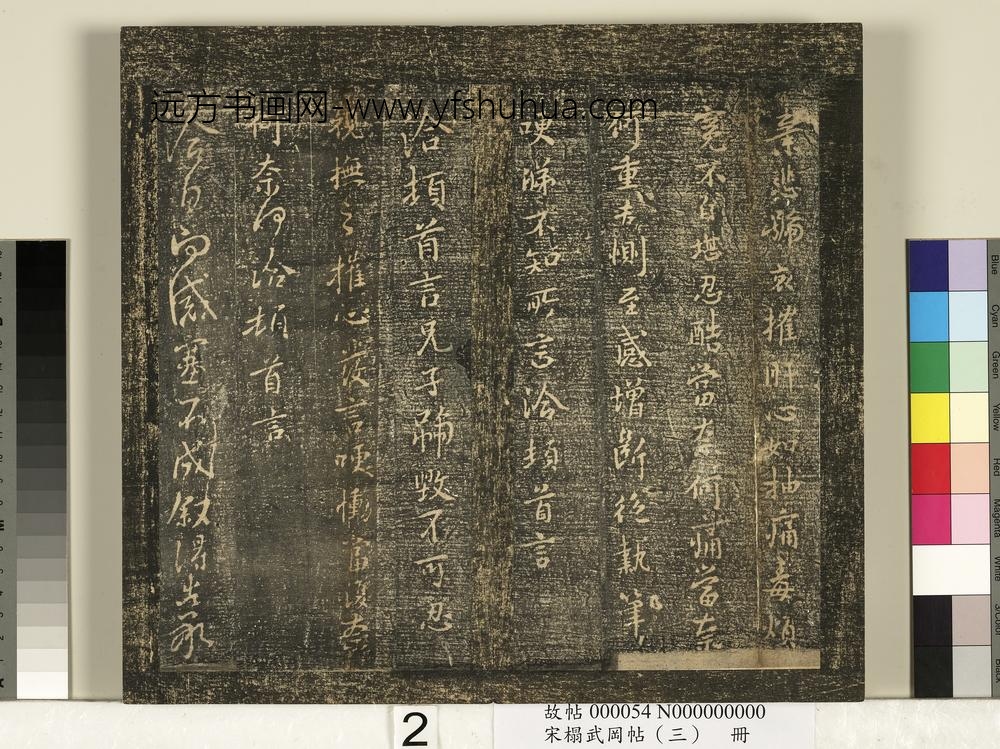 远方书画网-www.yfshuhua.com
悲號哀摧肝心如抽痛毒煩
寃不自堪忍酷當奈何痛當奈
何重告惻至感增斷絕執筆
哽涕不知所言洽頓首言
洽頓首言兄子號毀不可忍
視撫之摧心發言哽慟當復奈
何奈何洽頓首言
感塞不成敘
2
故帖 000054 N000000000
宋榻武岡帖（三） 冊
Blue
Cyan
Green
Yellow
Red
Magenta
White
Black